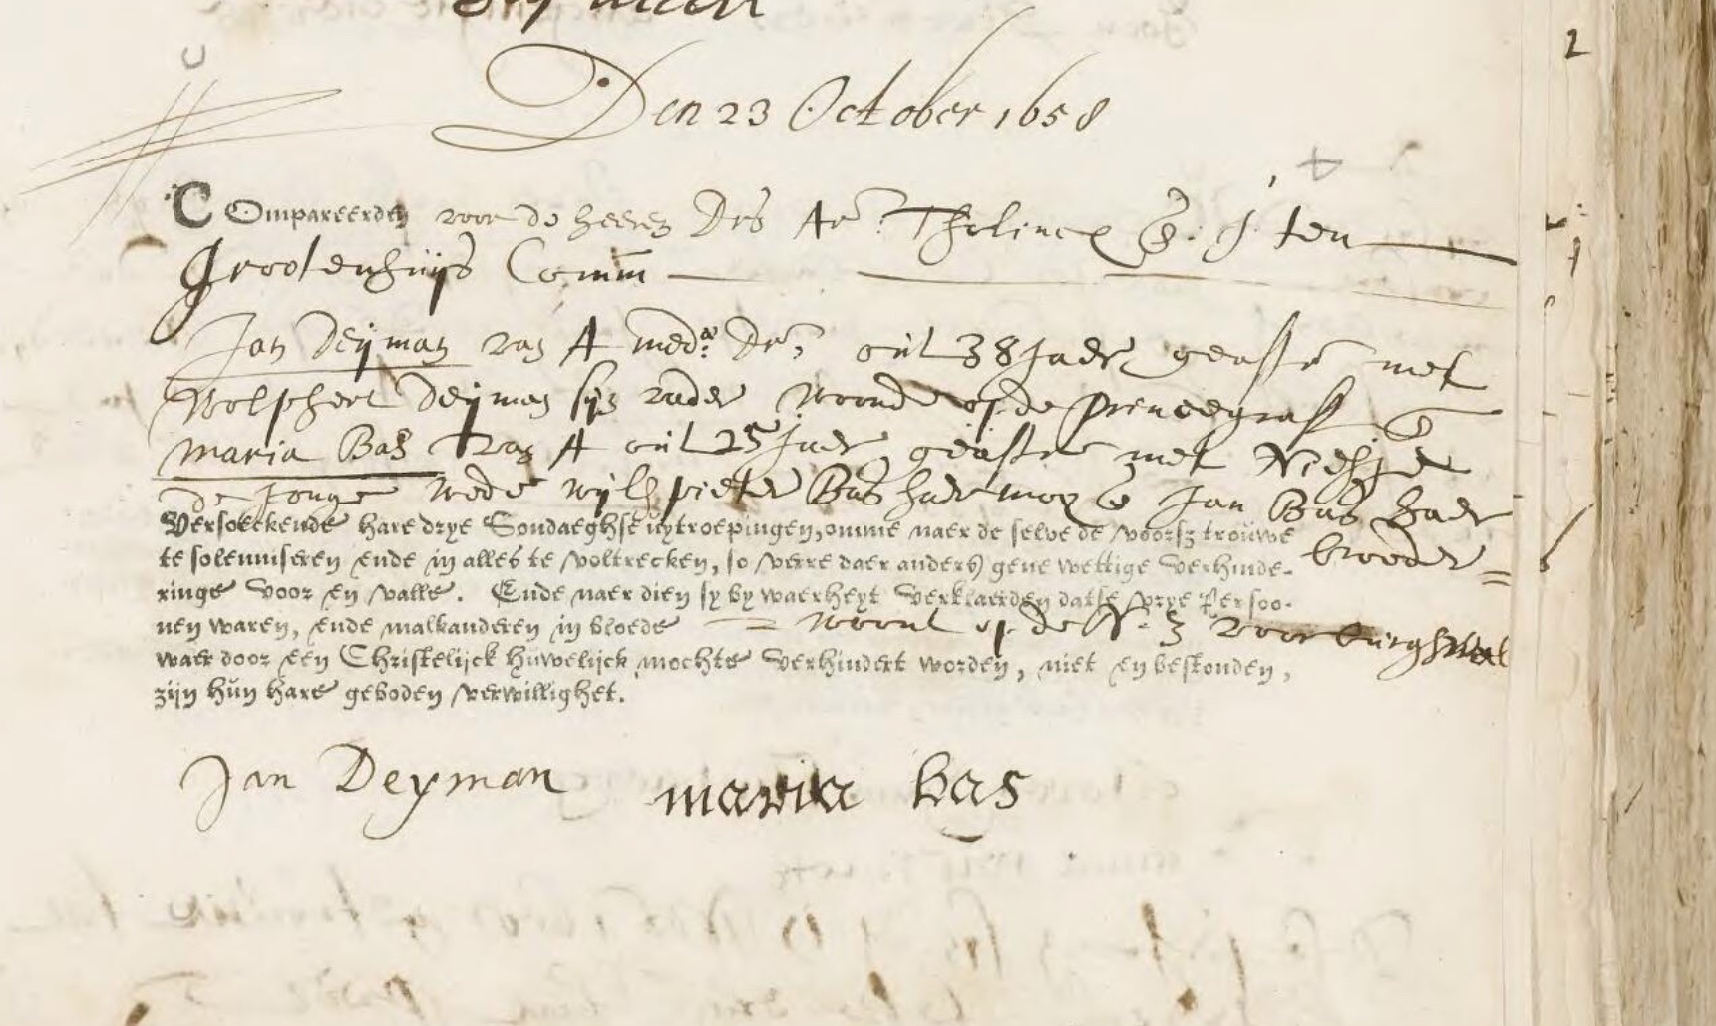 Den 23 October 1658
COmpareerden voor de heeren Drs Ar: Tholincx & J: ten
Grootenhuijs Comm
Jan Deijman van A med: Dr, out 38 Jaer geastr met
Wolphert Deijman sijn vader woond op de Princegraft &
Maria Bas van A out 25 Jaer geastr met
de Jonge wede wijl pieter Bas haer moe & Jan Bas haer
broeder
Versoeckende hare drye Sondaeghse uytroepingen, omme naer de selve de voorsz trouwe
te solemniseren ende in alles te voltrecken, so verre daer anders gene wettige verhinde-
ringe voor en valle. Ende naer dien sy by waerheyt verklaerden datse vrye Persoo-
nen waren, ende malkanderen in bloede woont op de N. Z voorburghwal
waer door een Christelijck huwelijck mochte verhindert worden, niet en bestonden,
zijn hun hare geboden verwillighet.
Jan Deyman maria bas
2